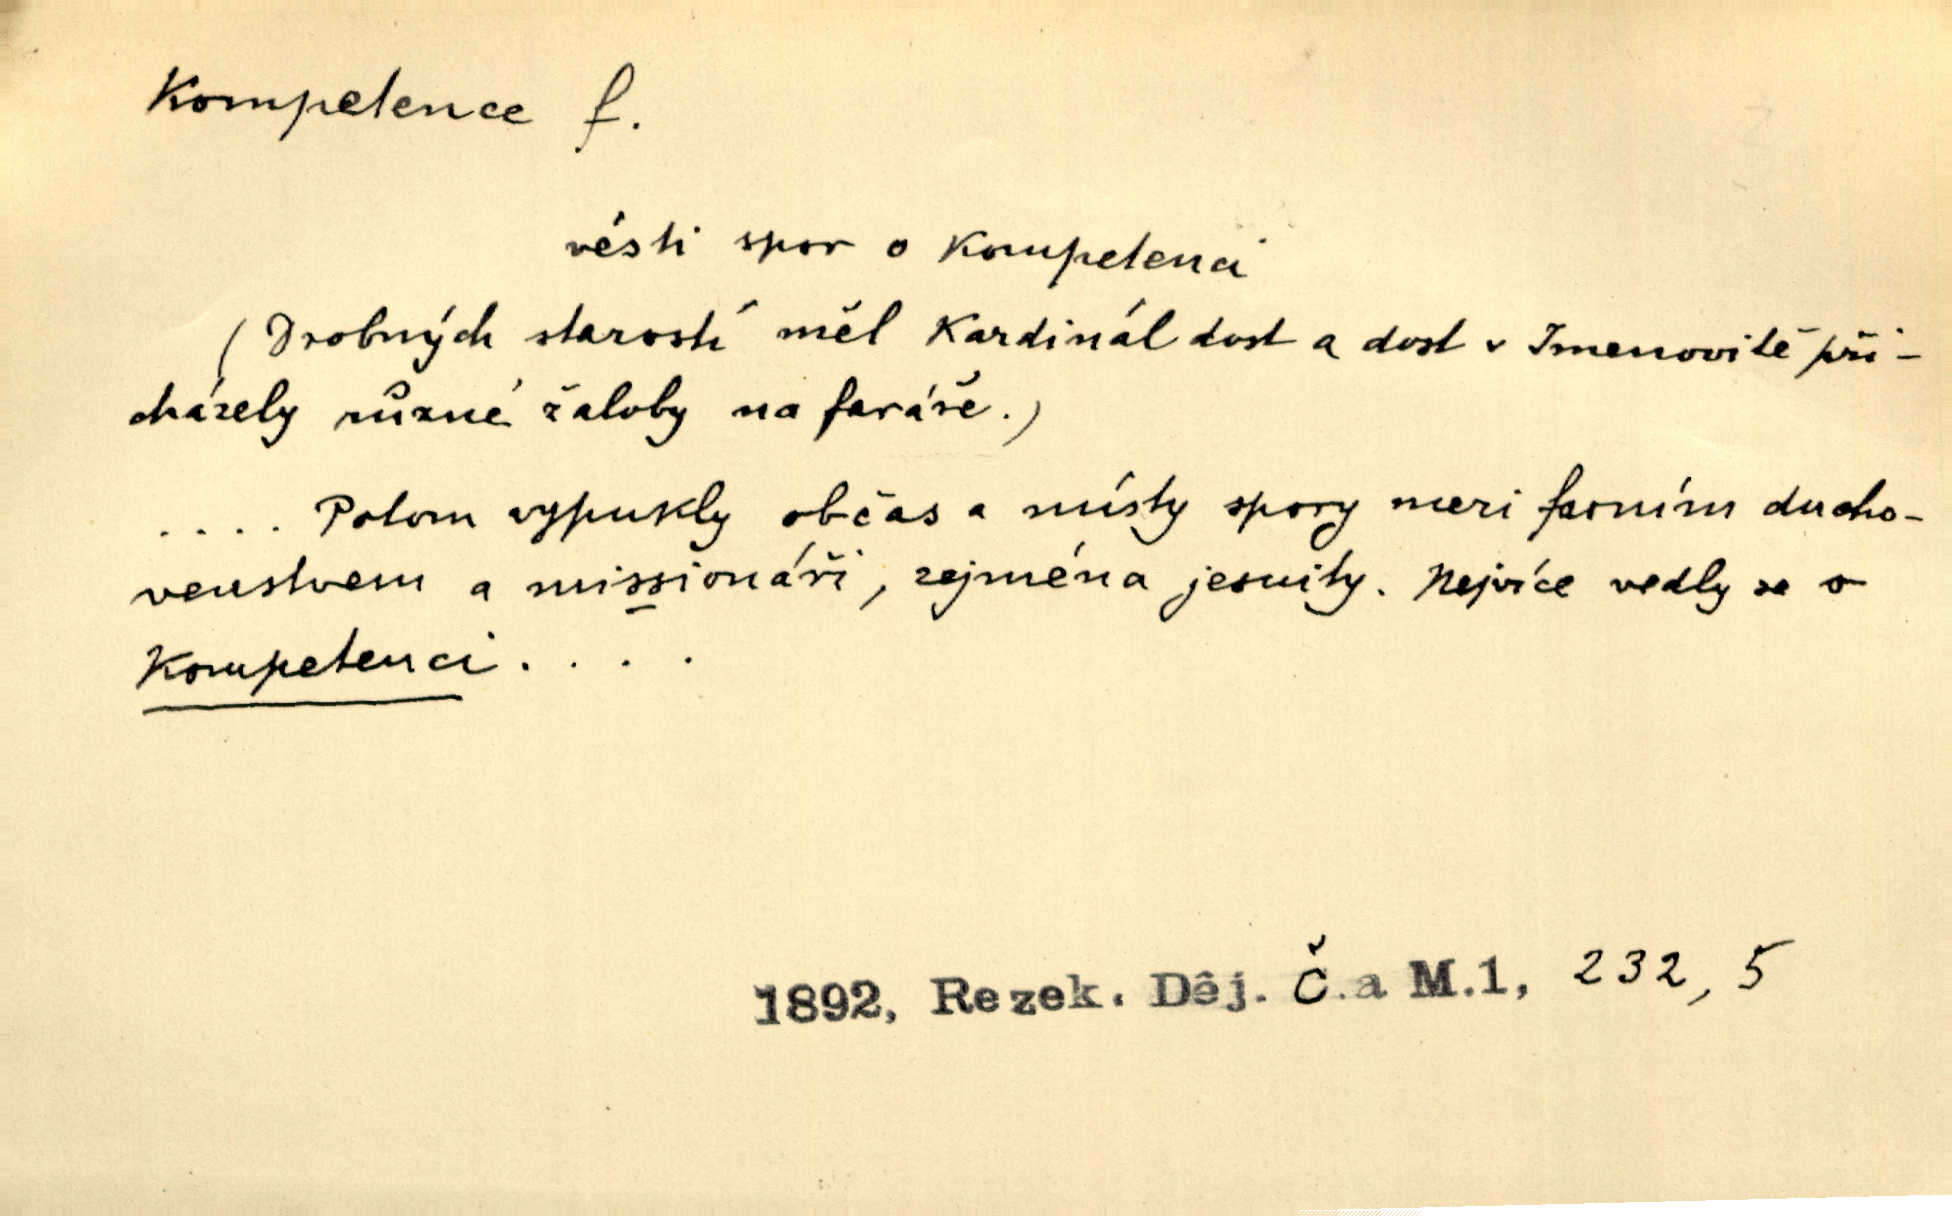 Kompetence f.
vésti spor o kompetenci
(Drobných starostí měl Kardinál dost a dost. Jmenovitě při-
cházely různé žaloby na faráře.)
.... Potom vypukly občas a místy spory mezi farním ducho-
venstvem a missionáři, zejména jesuity. Nejvíce vedly se o
kompetenci....
1892, Rezek. Děj. Č. a M.1, 232,5